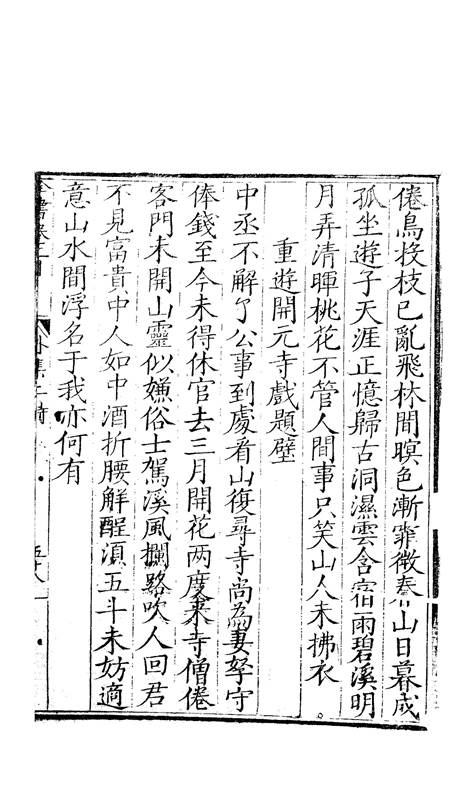 倦鳥投枝已亂飛林間暝色漸霏微春山日暮成
孤坐遊子天涯正憶歸古洞濕雲含宿雨碧溪明
月弄清暉桃花不管人間事只笑山人未拂衣
重遊開元寺戲題壁
中丞不解了公事到處看山復尋寺尚為妻孥守
俸錢至今未得休官去三月開花两度來寺僧倦
客門未開山靈似嫌俗士駕溪風攔路吹人回君
不見富貴中人如中酒折腰解酲湏五斗未妨適
意山水間浮名于我亦何有